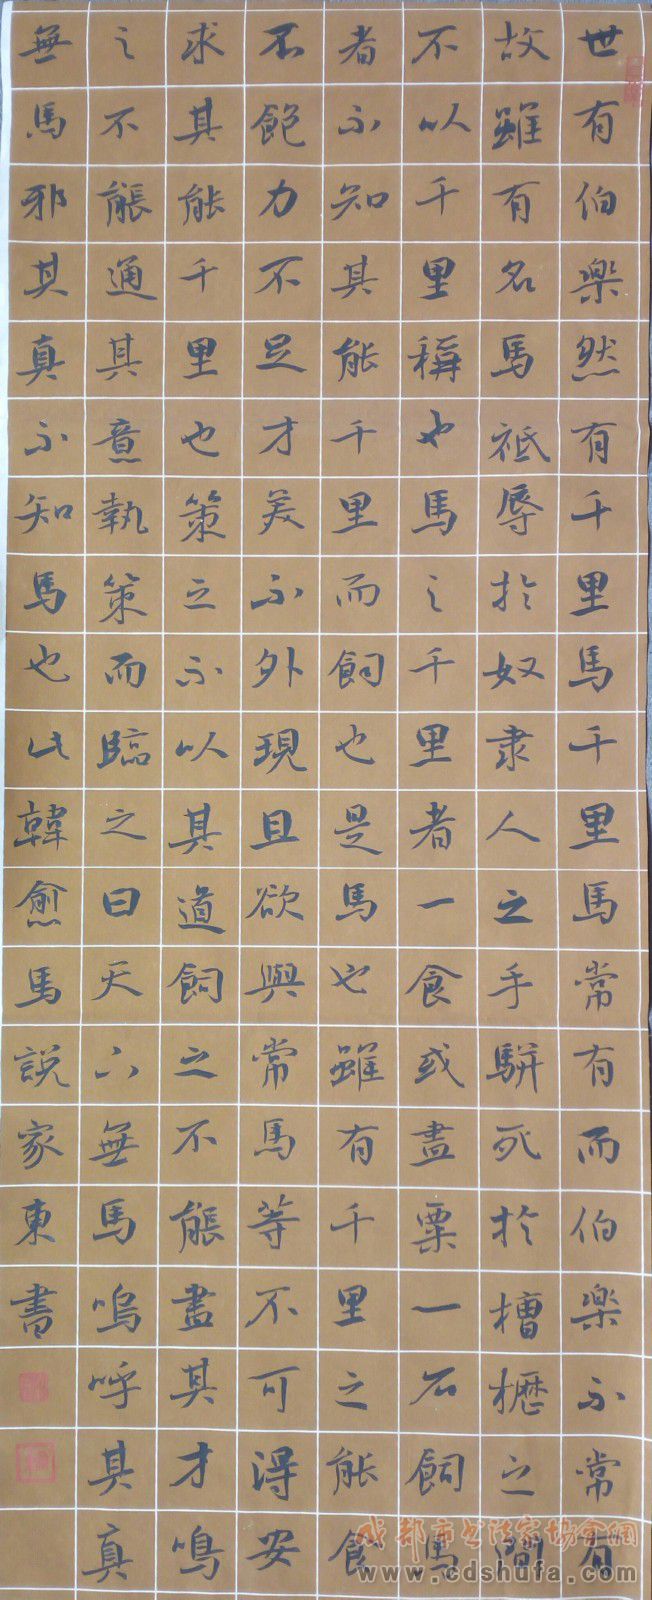 世有伯樂然有千里馬千里馬常有而伯樂不常有
故雖有名馬祗辱於奴隶人之手駢死於槽櫪之間
不以千里稱也馬之千里者一食或盡粟一石飼馬
者不知其能千里而飼也是馬也雖有千里之能食
不飽力不足才美不外現且欲與常馬等不可得安
求其能千里也策之不以其道飼之不能盡其才鳴
之不能通其意執策而臨之曰天下無馬嗚呼其真
無馬邪其真不知馬也此韓愈馬說家東書
成都市书法家協會網
www.cdshufa.com